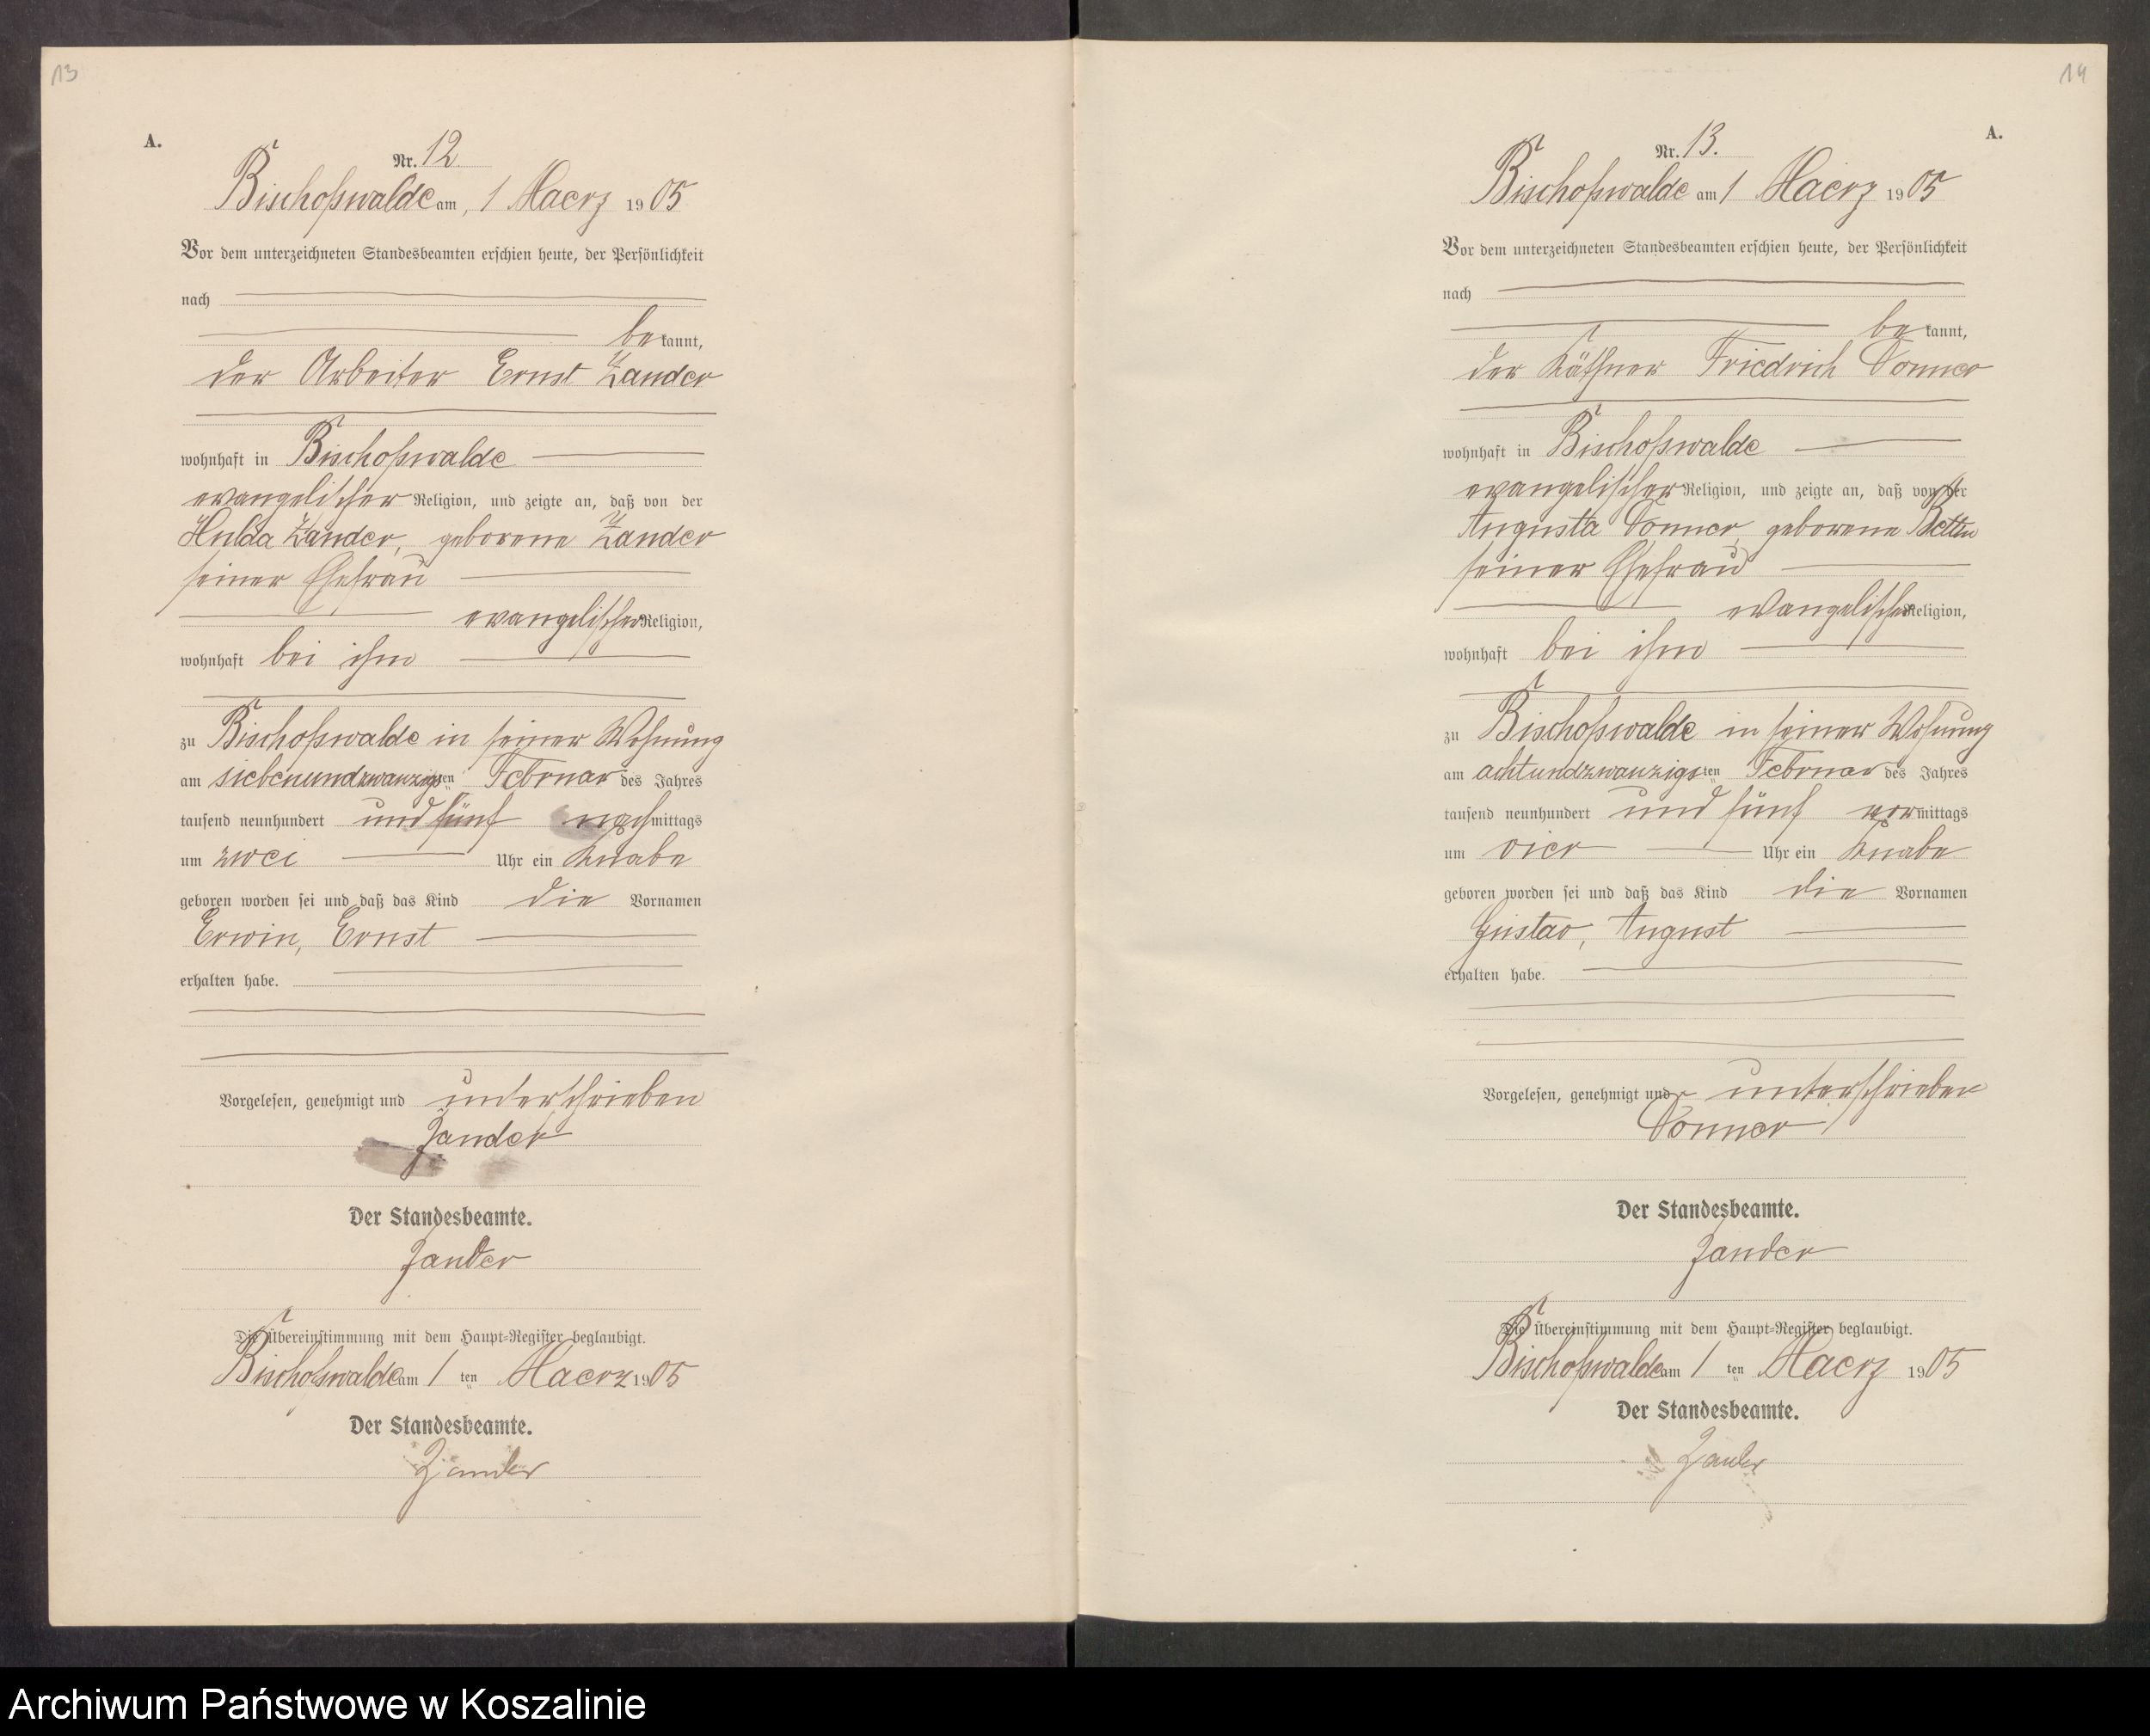 13
A.
Nr. 12
Bischofswalde am 1 Maerz 1905
Vor dem unterzeichneten Standesbeamten erschien heute, der Persönlichkeit
nach
be kannt,
der Arbeiter Ernst Zander
wohnhaft in Bischofswalde
evangelischer Religion, und zeigte an, daß von der
Hulda Zander, geborene Zander
seiner Ehefrau
evangelischer Religion,
wohnhaft bei ihm
zu Bischofswalde in seiner Wohnung
am siebenundzwanzigsten Februar des Jahres
tausend neunhundert und fünf nachmittags
um zwei Uhr ein Knabe
geboren worden sei und daß das Kind die Vornamen
Erwin, Ernst
erhalten habe.
Vorgelesen, genehmigt und unterschrieben
Zander
Der Standesbeamte.
Zander
Die Übereinstimmung mit dem Haupt-Register beglaubigt.
Bischofswalde am 1 ten Maerz 1905
Der Standesbeamte.
Zander
14
A.
Nr. 13.
Bischofswalde am 1 Maerz 1905
Vor dem unterzeichneten Standesbeamten erschien heute, der Persönlichkeit
nach
be kannt,
der Käthner Friedrich Donner
wohnhaft in Bischofswalde
evangelischer Religion, und zeigte an, daß von der
Augusta Donner, geborene
seiner Ehefrau
evangelischer Religion,
wohnhaft bei ihm
zu Bischofswalde in seiner Wohnung
am achtundzwanzigsten Februar des Jahres
tausend neunhundert und fünf vormittags
um vier Uhr ein Knabe
geboren worden sei und daß das Kind die Vornamen
Gustav, August
erhalten habe.
Vorgelesen, genehmigt und unterschrieben
Donner
Der Standesbeamte.
Zander
Die Übereinstimmung mit dem Haupt-Register beglaubigt.
Bischofswalde am 1 ten Maerz 1905
Der Standesbeamte.
Zander
Archiwum Państwowe w Koszalinie